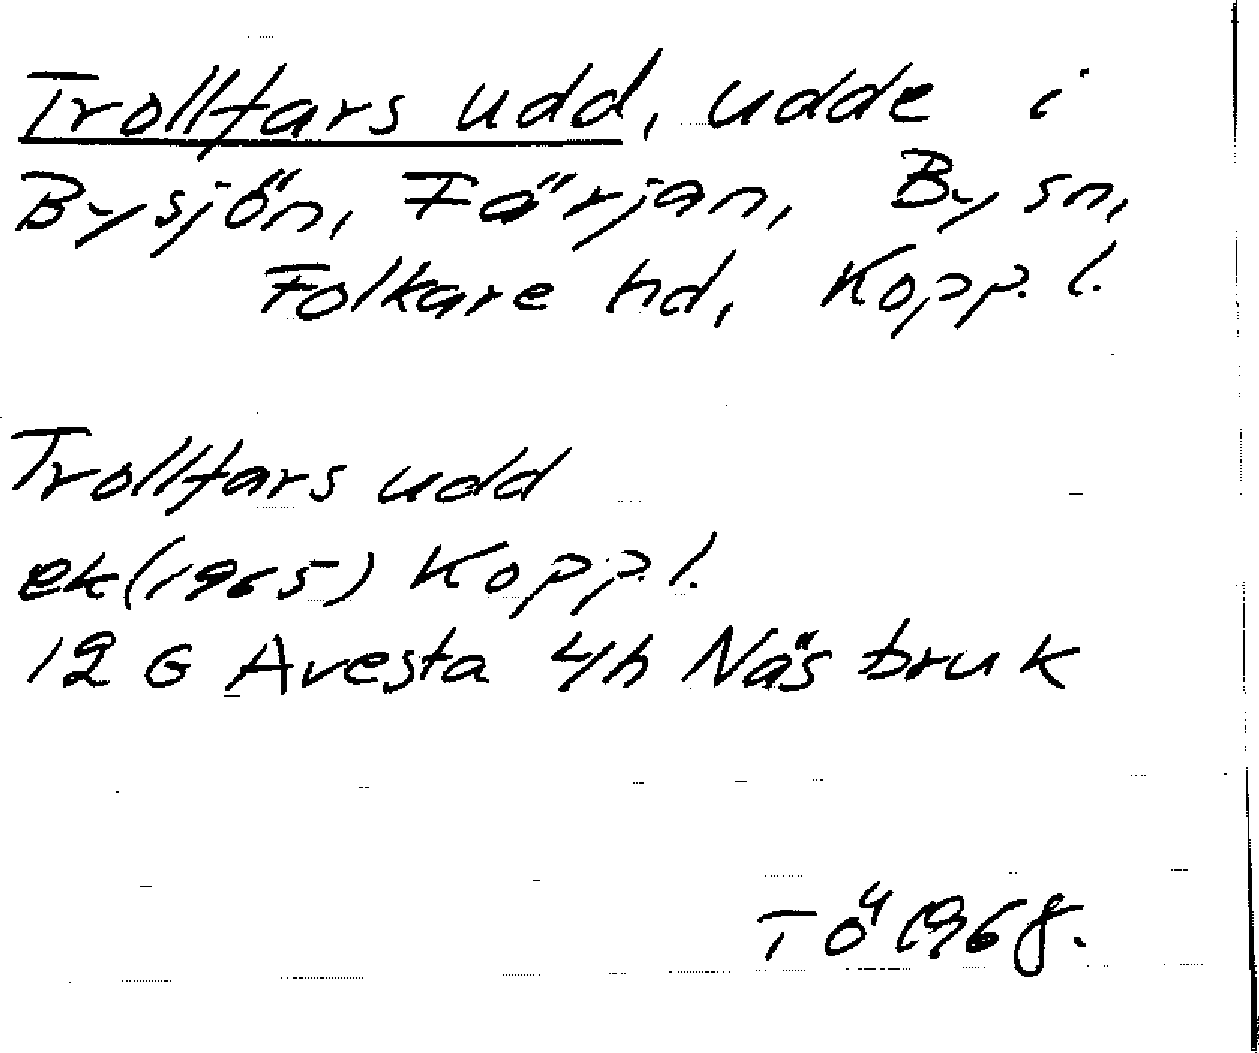 Trollfars udd, udde i
Bysjön, Färjan, By sn,
Folkare hd, Kopp. l.
Trollfars udd
ek (1965) Kopp. l.
12 G Avesta 4h Näs bruk
TÖ 1968.